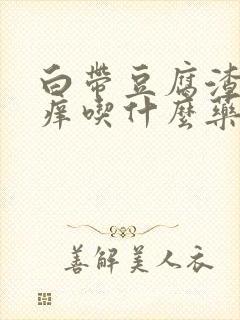 白帶豆腐渣
痒喫什麼藥
善解美人衣